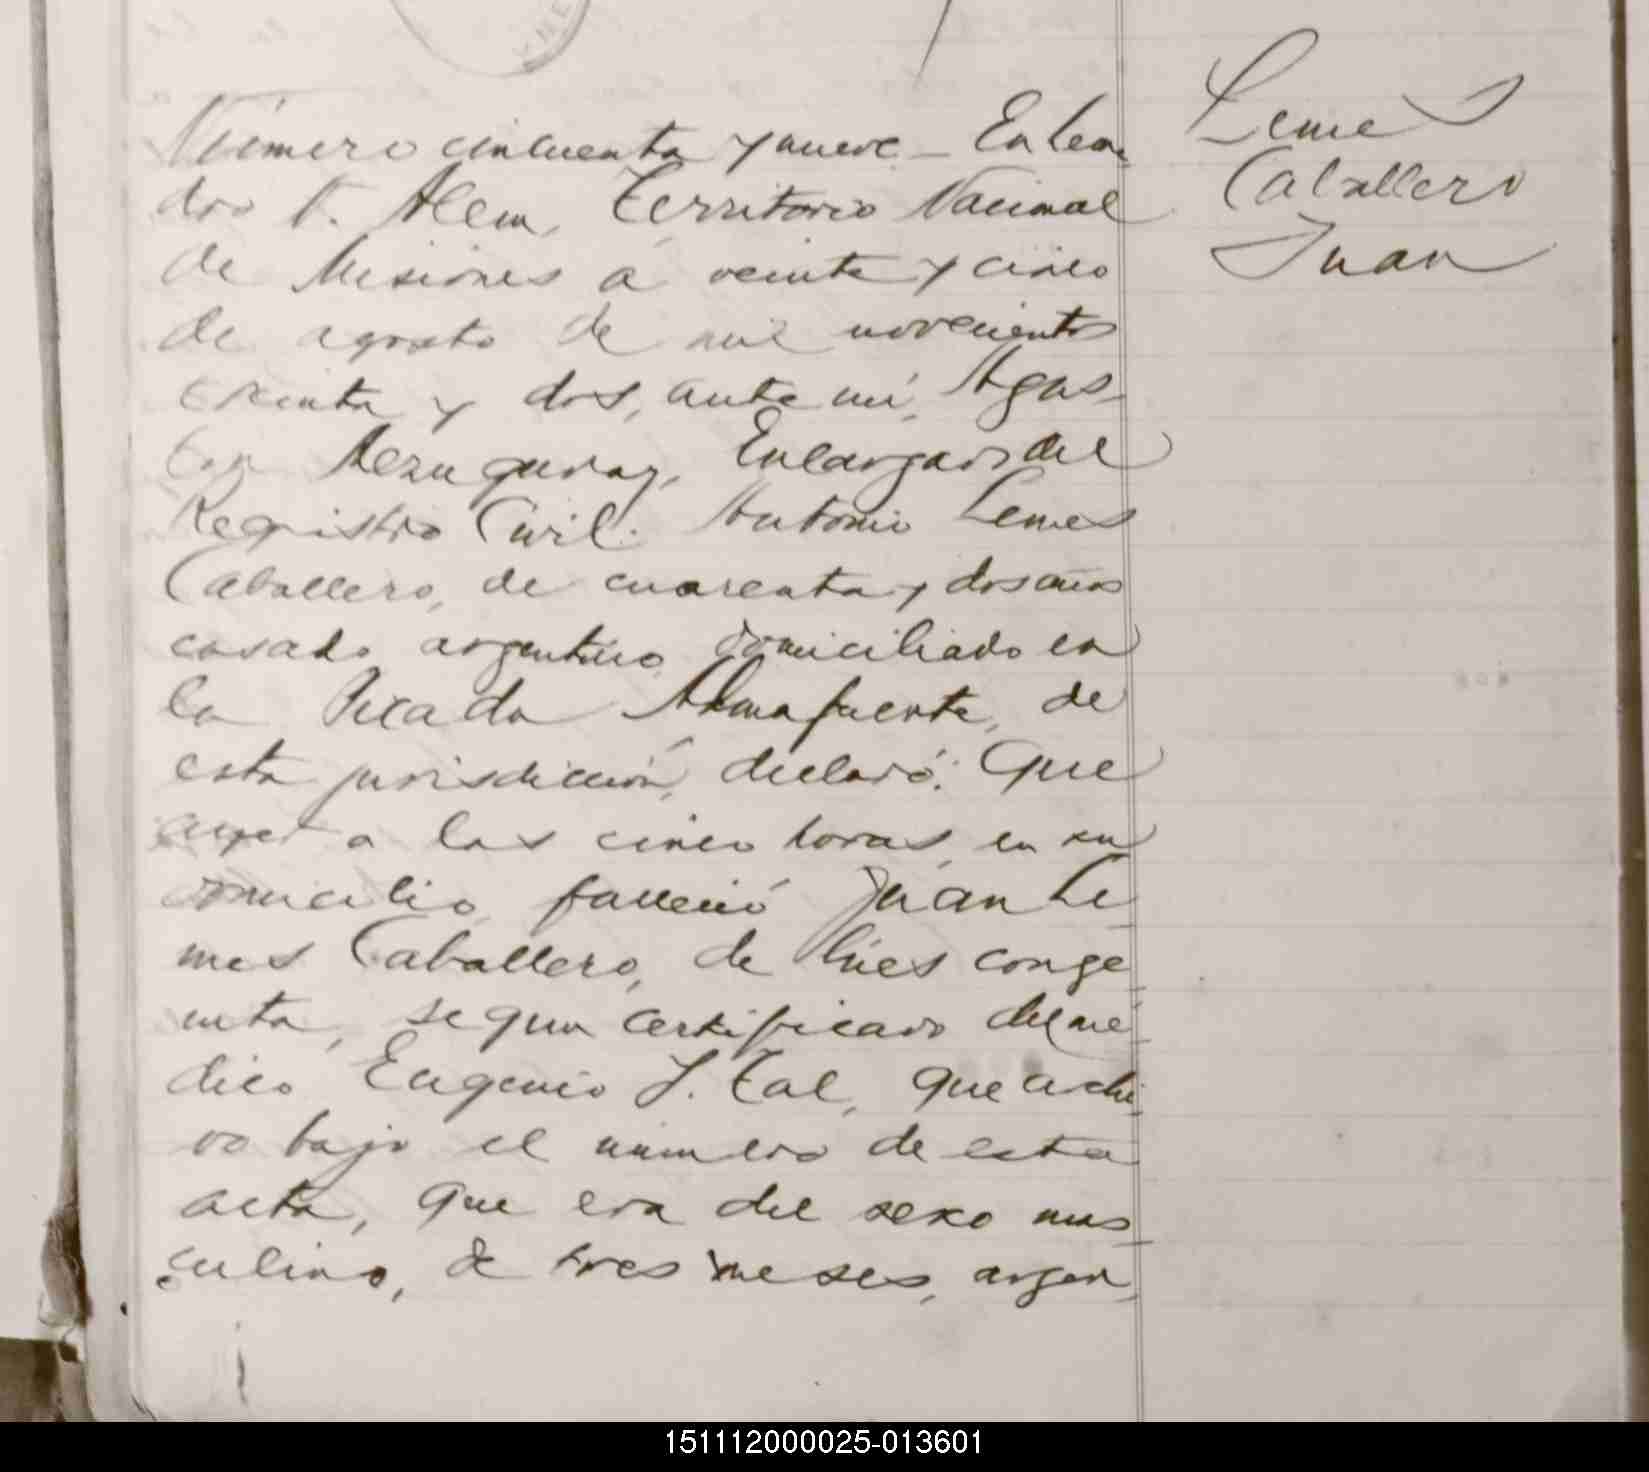 Número cincuenta y nueve - En Lean-
dro N. Alem, Territorio Nacional
de Misiones a veinte y cinco
de agosto de mil novecientos
treinta y dos, ante mi, Agus-
tin Encargado del
Registro Civil. Antonio Lemes
Caballero, de cuarenta y dos años
casado argentino, domiciliado en
la Picada Almafuerte, de
esta jurisdicción, declaró: Que
ayer a las cinco horas, en su
domicilio falleció Juan Le
mes Caballero, de lúes congé
nita, segun certificado del mé-
dico Eugenio J. Tal, que archi-
vo bajo el número de esta
acta, que era del sexo mas-
culino, de tres meses, argen-
Lemes
Caballero
Juan
151112000025-013601